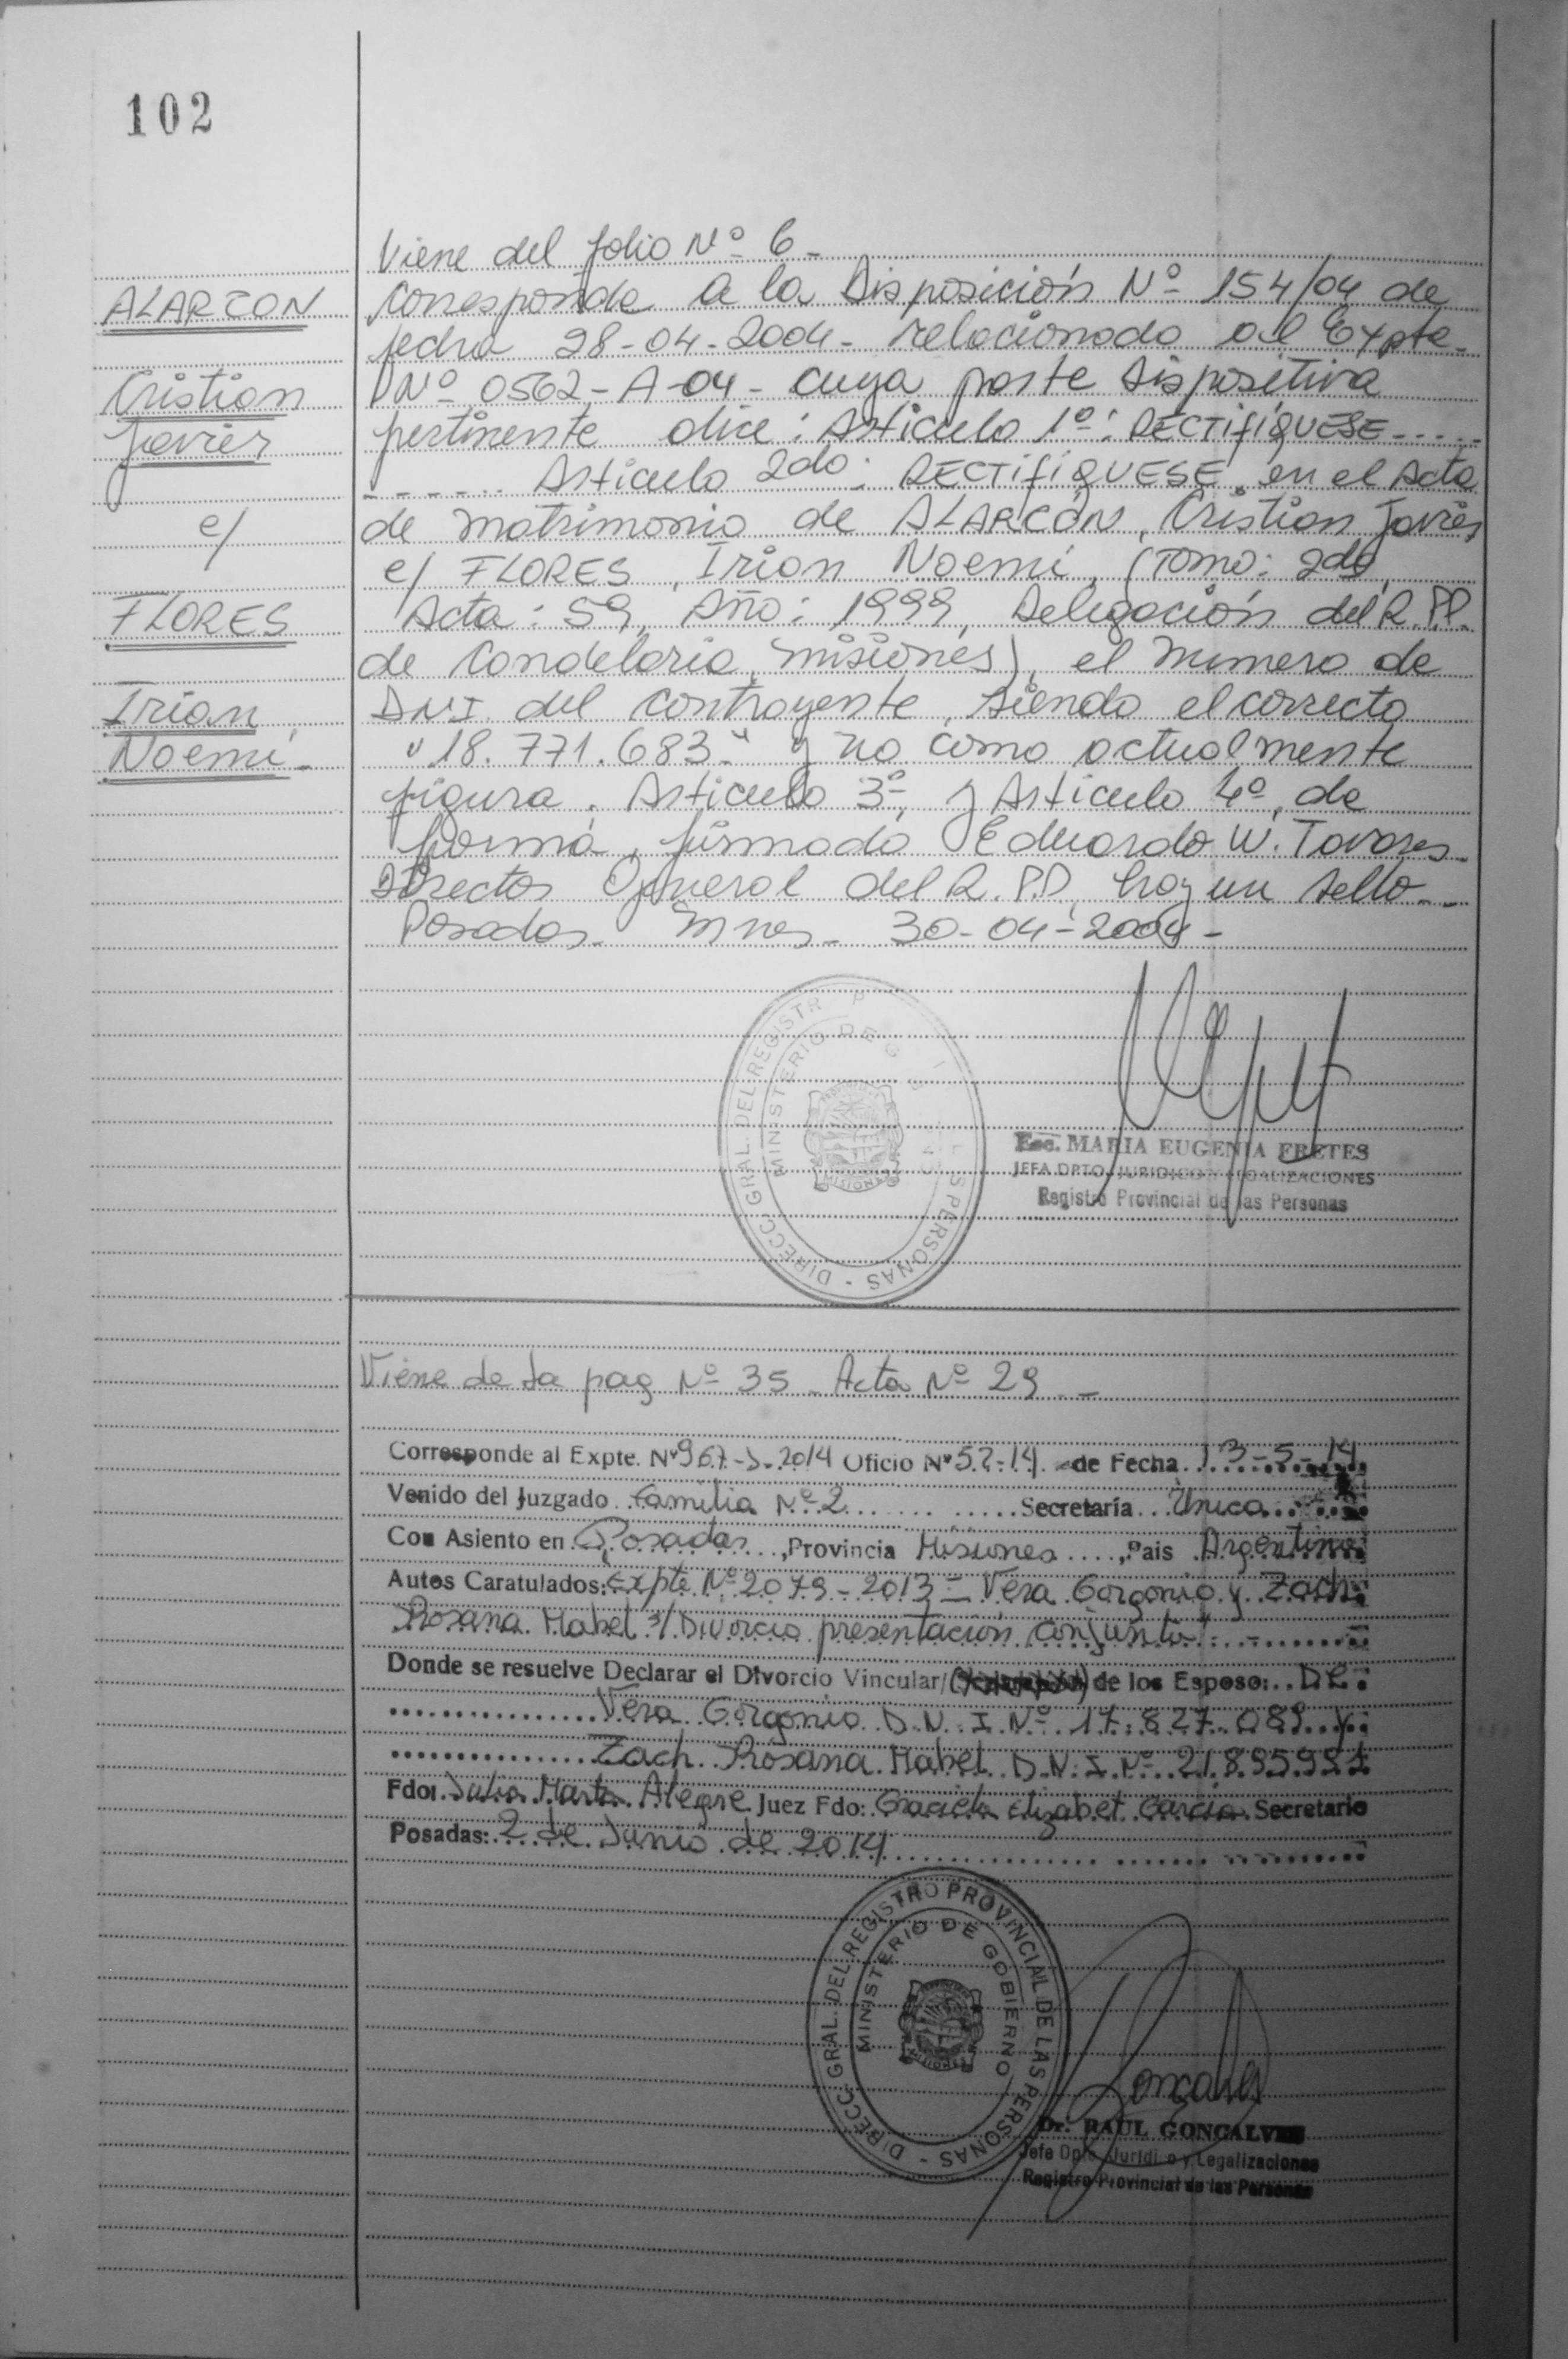 102
Viene del folio Nº 6 -
ALARCON
Corresponde a la Disposición Nº 154/04 de
fecha 28-04-2004- relacionado al Expte-
Cristian
Nº 0562-A-04- cuya parte dispositiva
Javier
pertinente dice: Articulo 1º: RECTIFIQUESE.....
...... Articulo 2do: RECTIFIQUESE, en el Acta
e/
de matrimonio de ALARCÓN, Cristian Javier
e/ FLORES, Irian Noemí, (Tomo: 2do,
FLORES
Acta: 59, Año: 1999, Delegación del R.P.P.
de Candelaria, Misiones), el numero de
Irian
DNI del contrayente, siendo el correcto
Noemí-
"18.771.683" y no como actualmente
figura. Articulo 3º, y Articulo 4º, de
forma, firmado Eduardo W. Tavares-
Director General del R.P.P, hay un sello--
Posadas- Mnes- 30-04-2004-
DIRECC. GRAL. DEL REGISTR P PERSONAS -
MINISTERIO DE G
MISIONES
Esc. MARIA EUGENIA FRETES
JEFA DPTO. JURIDICO Y LEGALIZACIONES
Registro Provincial de las Personas
Viene de la pag Nº 35 - Acta Nº 29 - -
Corresponde al Expte. Nº 967-J-2014 Oficio Nº 52-14. de Fecha 13-5-14
Venido del Juzgado Familia Nº 2 Secretaría Unica
Con Asiento en Posadas, Provincia Misiones, Pais Argentina
Autos Caratulados: Expte Nº 2079-2013 = Vera Gorgonio y Zach
Rosana Mabel s/ Divorcio presentación conjunta".
Donde se resuelve Declarar el Divorcio Vincular/( ) de los Esposo: DE:
Vera Gorgonio D.N.I Nº 17.827.089 y
Zach Rosana Mabel D.N.I Nº 21.895.991
Fdo: Julia Marta Alegre Juez Fdo: Graciela Elizabet Garcia Secretario
Posadas: 2 de Junio de 2014
DIRECC. GRAL. DEL REGISTRO PROVINCIAL DE LAS PERSONAS -
MINISTERIO DE GOBIERNO
MISIONES
Dr. RAUL GONCALVES
Jefe Dpto. Juridico y Legalizaciones
Registro Provincial de las Personas